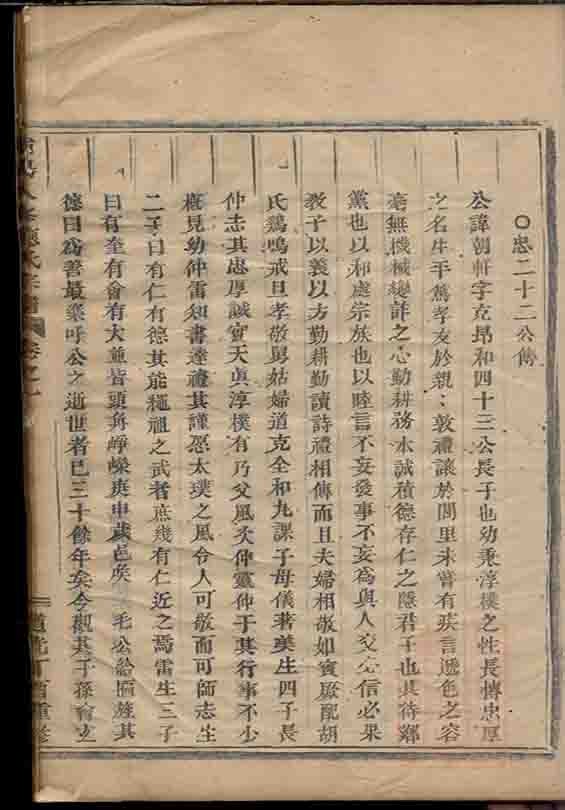 ○忠二十二公傳
公諱朝軒字克昂和四十三公長子也幼秉淳樸之性長博忠厚
之名生平篤孝友於親：敦禮讓於閭里未嘗有疾言遽色之容
毫無機械變詐之心勤耕務本誠積德存仁之隱君子也其待鄰
黨也以和處宗族也以睦言不妄發事不妄為與人交公信必果
教子以義以方勤耕勤讀詩禮相傳而且夫婦相敬如賓原配胡
氏鷄鳴戒旦孝敬舅姑婦道克全和九課子母儀著美生四子長
仲志其忠厚誠實天真淳樸有乃父風次仲靈仲于其行事不少
概見幼仲雷知書達禮其謹愿太璞之風令人可敬而可師志生
二子曰有仁有德其能繩祖之武者庶幾有仁近之焉雷生三子
曰有奎有會有大並皆頭角崢嶸庚申歲邑矦 毛公給匾旌其
德曰為善最樂吁公之逝世者已三十餘年矣今觀其子孫會
氏宗譜 卷之一
道光丁酉重修